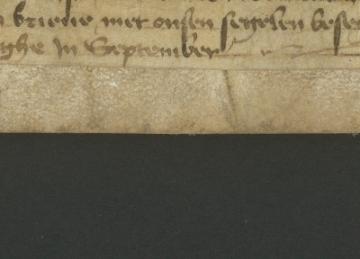 n brieue met onsen segelen bese
ghe In September